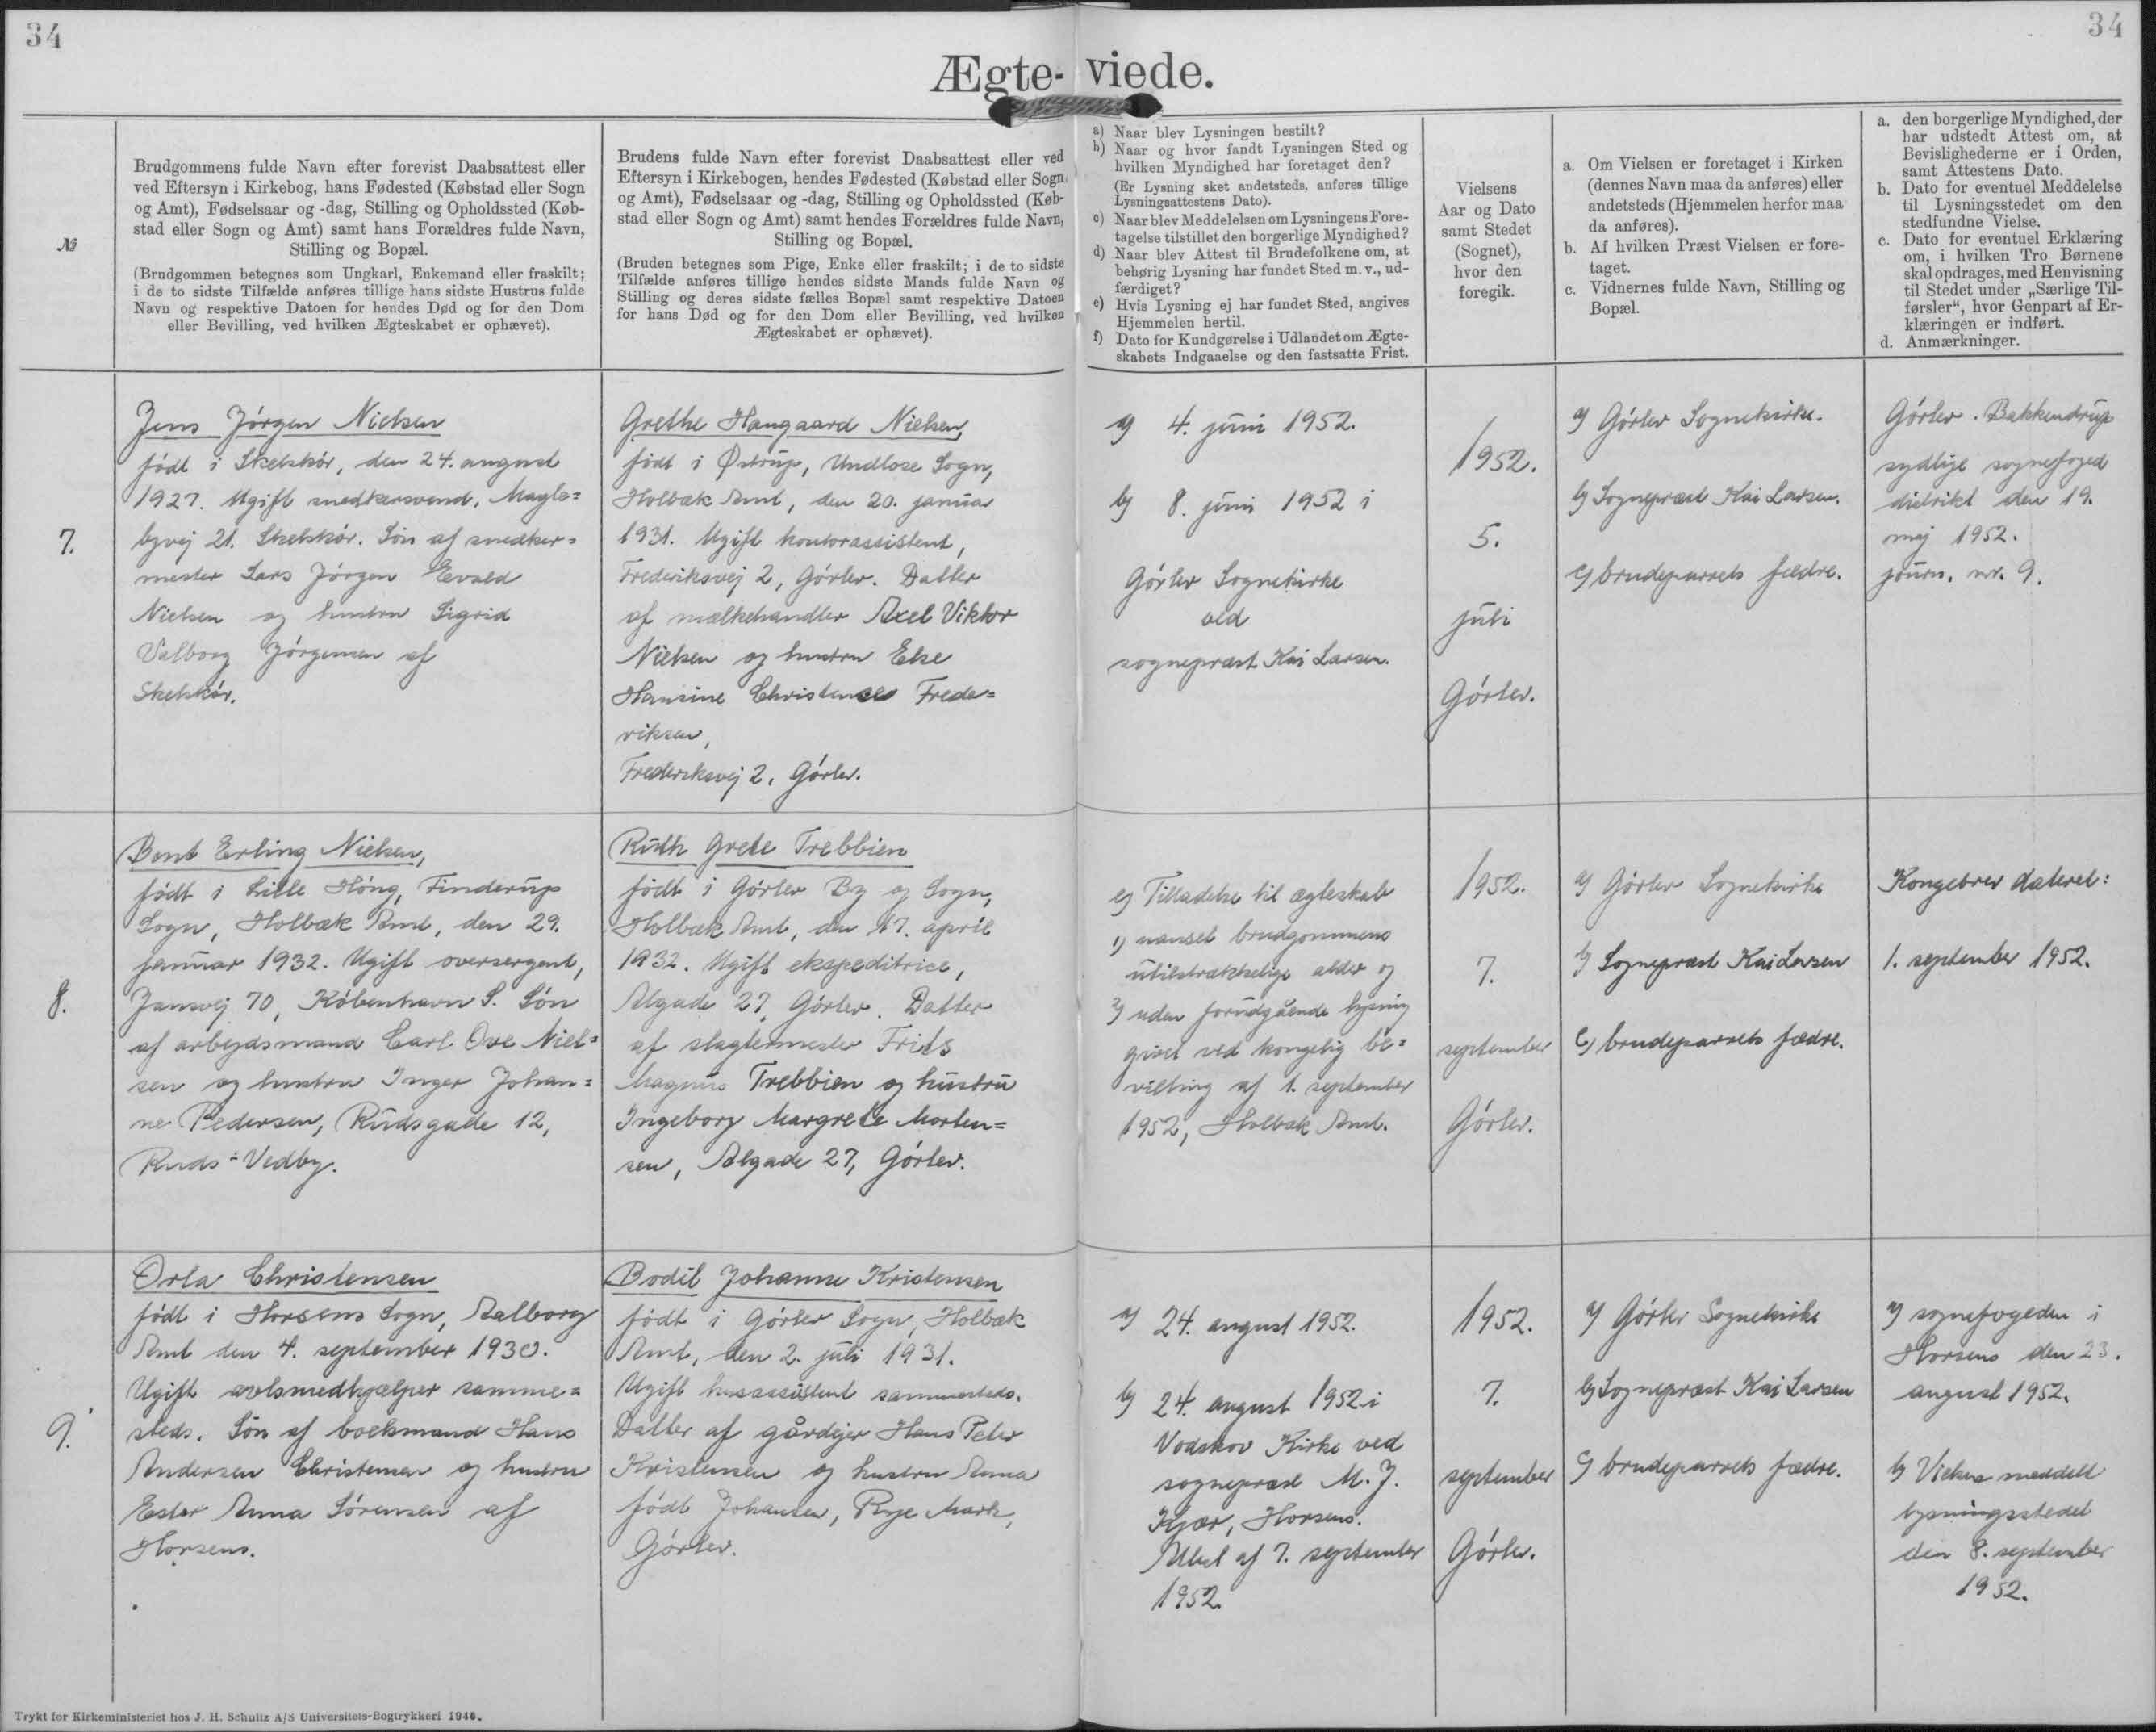 34
34
Ægte- viede.
№
Brudgommens fulde Navn efter forevist Daabsattest eller
ved Eftersyn i Kirkebog, hans Fødested (Købstad eller Sogn
og Amt), Fødselsaar og -dag, Stilling og Opholdssted (Køb-
stad eller Sogn og Amt) samt hans Forældres fulde Navn,
Stilling og Bopæl.
(Brudgommen betegnes som Ungkarl, Enkemand eller fraskilt;
i de to sidste Tilfælde anføres tillige hans sidste Hustrus fulde
Navn og respektive Datoen for hendes Død og for den Dom
eller Bevilling, ved hvilken Ægteskabet er ophævet).
Brudens fulde Navn efter forevist Daabsattest eller ved
Eftersyn i Kirkebogen, hendes Fødested (Købstad eller Sogn
og Amt), Fødselsaar og -dag, Stilling og Opholdssted (Køb-
stad eller Sogn og Amt) samt hendes Forældres fulde Navn,
Stilling og Bopæl.
(Bruden betegnes som Pige, Enke eller fraskilt; i de to sidste
Tilfælde anføres tillige hendes sidste Mands fulde Navn og
Stilling og deres sidste fælles Bopæl samt respektive Datoen
for hans Død og for den Dom eller Bevilling, ved hvilken
Ægteskabet er ophævet).
a) Naar blev Lysningen bestilt?
b) Naar og hvor fandt Lysningen Sted og
hvilken Myndighed har foretaget den?
(Er Lysning sket andetsteds, anføres tillige
Lysningsattestens Dato).
c) Naar blev Meddelelsen om Lysningens Fore-
tagelse tilstillet den borgerlige Myndighed?
d) Naar blev Attest til Brudefolkene om, at
behørig Lysning har fundet Sted m. v., ud-
færdiget?
e) Hvis Lysning ej har fundet Sted, angives
Hjemmelen hertil.
f) Dato for Kundgørelse i Udlandet om Ægte-
skabets Indgaaelse og den fastsatte Frist.
Vielsens
Aar og Dato
samt Stedet
(Sognet),
hvor den
foregik.
a. Om Vielsen er foretaget i Kirken
(dennes Navn maa da anføres) eller
andetsteds (Hjemmelen herfor maa
da anføres).
b. Af hvilken Præst Vielsen er fore-
taget.
c. Vidnernes fulde Navn, Stilling og
Bopæl.
a. den borgerlige Myndighed, der
har udstedt Attest om, at
Bevislighederne er i Orden,
samt Attestens Dato.
b. Dato for eventuel Meddelelse
til Lysningsstedet om den
stedfundne Vielse.
c. Dato for eventuel Erklæring
om, i hvilken Tro Børnene
skal opdrages, med Henvisning
til Stedet under „Særlige Til-
førsler“, hvor Genpart af Er-
klæringen er indført.
d. Anmærkninger.
7.
Jens Jörgen Nielsen
född i Skelskör, den 24. august
1927. Ugift snedkersvend, Magle=
byvej 21. Skelskör. Sön af snedker=
mester Lars Jörgen Evald
Nielsen og hustru Sigrid
Valborg Jörgensen af
Skelskör.
Grethe Haugaard Nielsen,
född i Østrup, Undlose Sogn,
Holbæk Amt, den 20. januar
1931. Ugift kontorassistent,
Frederiksvej 2, Görlev. Datter
af mælkehandler Axel Viktor
Nielsen og hustru Else
Hansine Christense Frede=
riksen,
Frederiksvej 2, Görlev.
a) 4. juni 1952.
b) 8. juni 1952 i
Görlev Sognekirke
ved
sognepræst Kai Larsen.
1952.
5.
juli
Görlev.
a) Görlev Sognekirke.
b) Sognepræst Kai Larsen.
c) brudeparrets fædre.
Görlev. Bakkendrup
sydlige sognefoged
distrikt den 19.
maj 1952.
journ. nr. 9.
8.
Bent Erling Nielsen,
födt i Lille Höng, Finderup
Sogn, Holbæk Amt, den 29.
januar 1932. Ugift oversergent,
Jansvej 70, Köbenhavn S. Sön
af arbejdsmand Carl Ove Niel=
sen og hustru Inger Johan=
ne Pedersen, Rudsgade 12,
Ruds=Vedby.
Ruth Grete Trebbien
födt i Görlev By og Sogn,
Holbæk Amt, den 17. april
1932. Ugift ekspeditrice,
Algade 27, Görlev. Datter
af slagtermester Frits
Magnus Trebbien og hustru
Ingeborg Margrete Morten=
sen, Algade 27, Görlev.
e) Tilladelse til ægteskab
1) uanset brudgommens
utilstrækkelige alder og
2) uden forudgående lysning
givet ved kongelig be=
villing af 1. september
1952, Holbæk Amt.
1952.
7.
september
Görlev.
a) Görlev Sognekirke
b) Sognepræst Kai Larsen
c) brudeparrets fædre.
Kongebrev dateret:
1. september 1952.
9.
Orla Christensen
födt i Horsens Sogn, Aalborg
Amt den 4. september 1930.
Ugift avlsmedhjælper samme=
steds. Sön af boelsmand Hans
Andersen Christensen og hustru
Ester Anna Sörensen af
Horsens.
Bodil Johanne Kristensen
födt i Görlev Sogn, Holbæk
Amt, den 2. juli 1931.
Ugift husassistent sammesteds.
Datter af gårdejer Hans Peter
Kristensen og hustru Anna
födt Johansen, Rye Mark,
Görlev.
a) 24. august 1952.
b) 24. august 1952 i
Vodskov Kirke ved
sognepræst M. J.
Kjær, Horsens.
Attest af 7. september
1952.
1952.
7.
september
Görlev.
a) Görlev Sognekirke
b) Sognepræst Kai Larsen
c) brudeparrets fædre.
a) sognefogeden i
Horsens den 23.
august 1952.
b) Vielsen meddelt
lysningsstedet
den 8. september
1952.
Trykt for Kirkeministeriet hos J. H. Schultz A/S Universitets-Bogtrykkeri 1946.